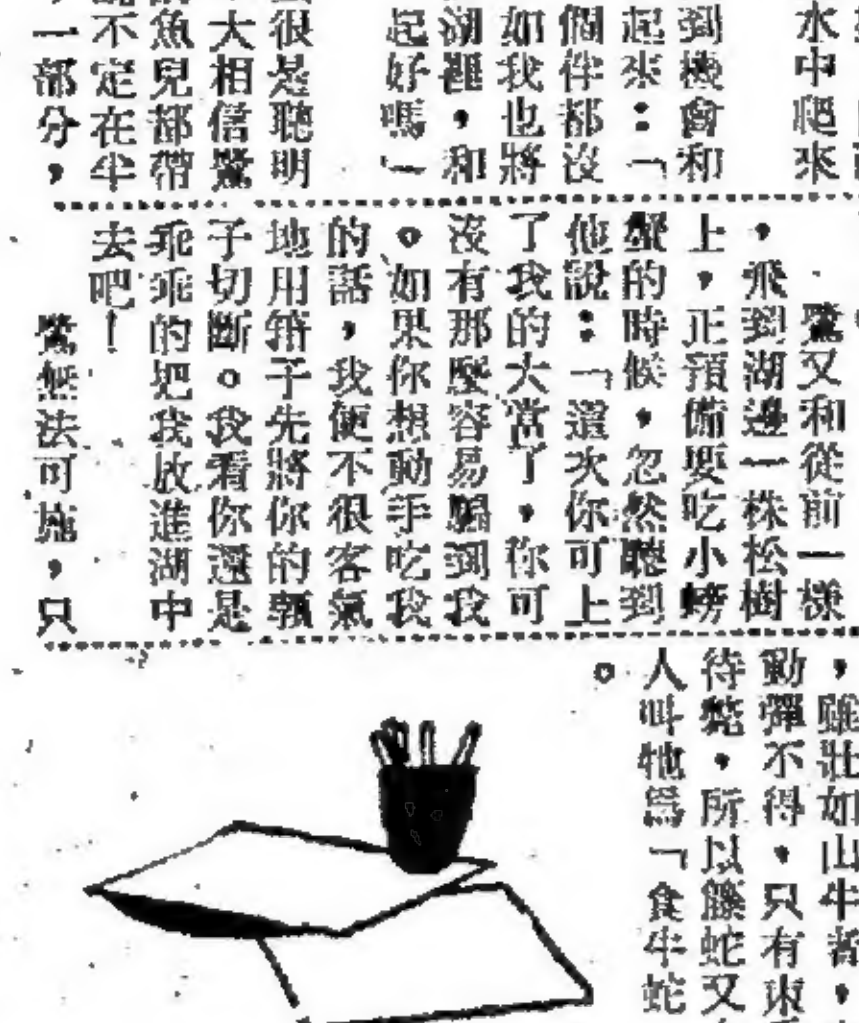 水中爬來
到機會和
起來：「
個伴都沒
如我也將
湖裡，和
起好嗎﹂
很是聰明
大相信鷺
魚兒都帶
不定在半
一部分，
鷺又和從前一樣
，飛到湖邊一株松樹
上，正預備要吃小螃
蟹的時候，忽然聽到
他說：「這次你可上
了我的大當了，你可
沒有那麼容易騙到我
。如果你想動手吃我
的話，我便不很客氣
地用箝子先將你的頸
子切斷。我看你還是
乖乖的把我放進湖中
去吧！
鷺無法可施，只
，雖壯如山牛者，
動彈不得，只有束
待斃，所以籐蛇又
人叫牠爲「食牛蛇
。